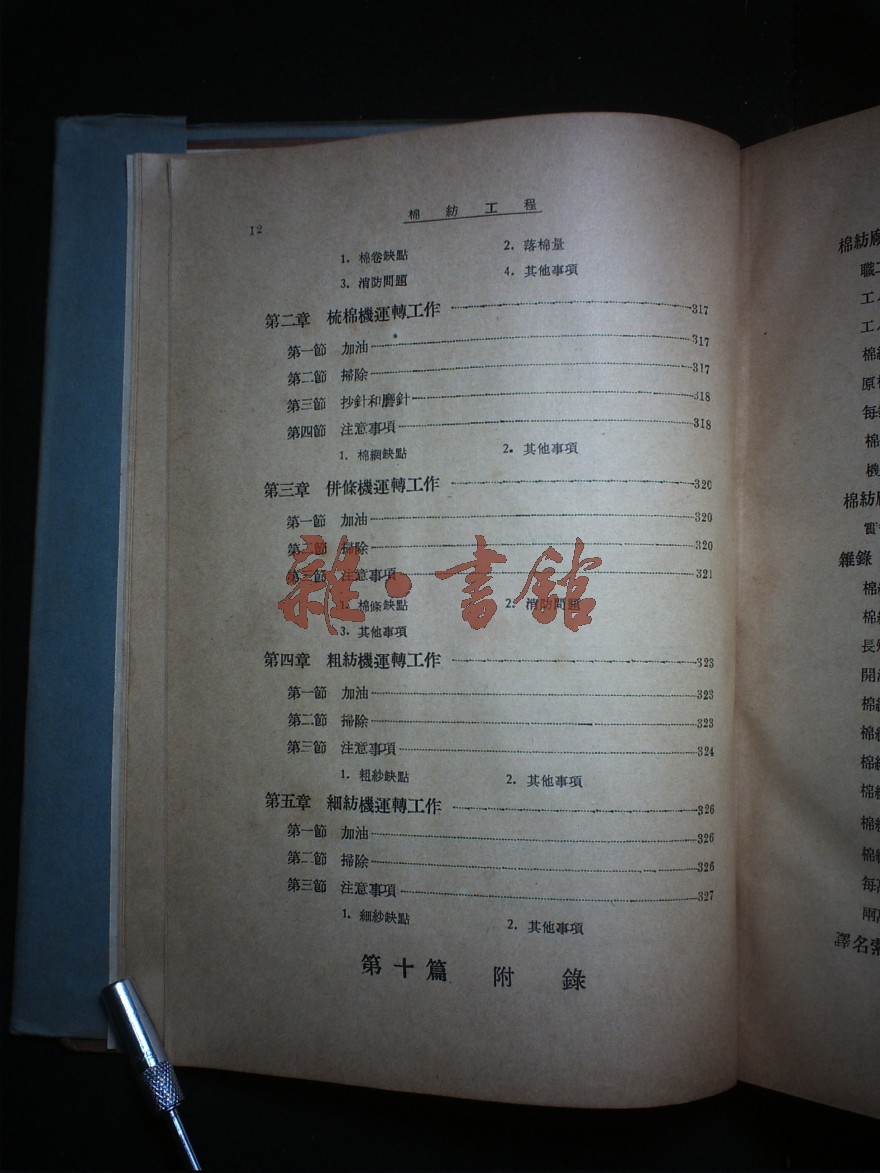 12
棉紡工程
1. 棉卷缺點 2. 落棉量
3. 消防問題 4. 其他事項
第二章 梳棉機運轉工作 317
第一節 加油 317
第二節 掃除 317
第三節 抄針和磨針 318
第四節 注意事項 318
1. 棉網缺點 2. 其他事項
第三章 併條機運轉工作 320
第一節 加油 320
第二節 掃除 320
第三節 注意事項 321
1. 棉條缺點 2. 消防問題
3. 其他事項
雜·書館
第四章 粗紡機運轉工作 323
第一節 加油 323
第二節 掃除 323
第三節 注意事項 324
1. 粗紗缺點 2. 其他事項
第五章 細紡機運轉工作 326
第一節 加油 326
第二節 掃除 326
第三節 注意事項 327
1. 細紗缺點 2. 其他事項
第十篇 附錄
棉紡廠
職工
工
工
棉紡
原
每
棉
機
棉紡廠
雜錄
棉
棉
長
開
棉
棉
棉
棉
棉
棉
每
兩
譯名索